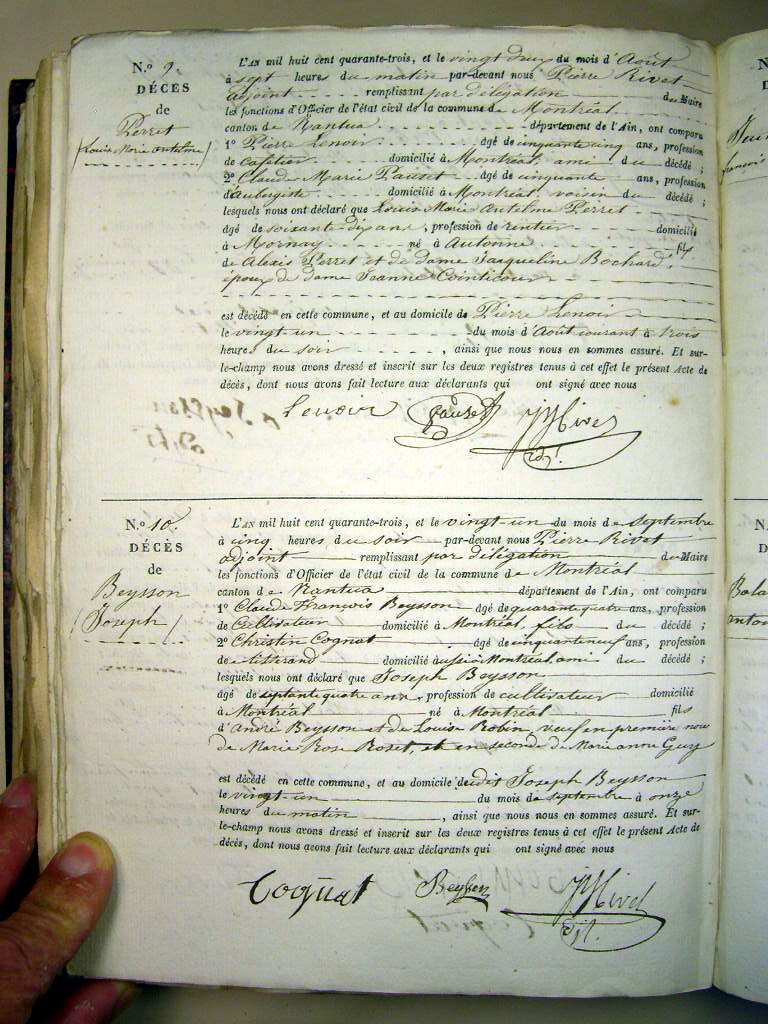 N.º 9.
DÉCÈS
de
Perret
(Louis Marie Antelme)
L'AN mil huit cent quarante-trois, et le vingt deux du mois d'Août
à sept heures du matin par-devant nous Pierre Rivet
adjoint remplissant par délégation de Maire
les fonctions d'Officier de l'état civil de la commune de Montréal
canton de Nantua département de l'Ain, ont comparu
1º Pierre Lenoir âgé de cinquante cinq ans, profession
de cafetier domicilié à Montréal, ami du décédé ;
2º Claude Marie Pauset âgé de cinquante ans, profession
d'aubergiste domicilié à Montréal, voisin du décédé ;
lesquels nous ont déclaré que Louis Marie Antelme Perret
âgé de soixante-dix ans, profession de rentier domicilié
à Mornay né à Autonne fils
de Alexis Perret et de dame Jacqueline Bochard,
époux de dame Jeanne Cointicour
est décédé en cette commune, et au domicile de Pierre Lenoir
le vingt-un du mois d'Août courant à trois
heures du soir, ainsi que nous nous en sommes assuré. Et sur-
le-champ nous avons dressé et inscrit sur les deux registres tenus à cet effet le présent Acte de
décès, dont nous avons fait lecture aux déclarants qui ont signé avec nous
Lenoir Pauset Rivet
adj.t
N.º 10.
DÉCÈS
de
Beysson
(Joseph)
L'AN mil huit cent quarante-trois, et le vingt-un du mois de septembre
à cinq heures du soir par-devant nous Pierre Rivet
adjoint remplissant par déligation de Maire
les fonctions d'Officier de l'état civil de la commune de Montréal
canton de Nantua département de l'Ain, ont comparu
1º Claude François Beysson âgé de quarante quatre ans, profession
de Cultivateur domicilié à Montréal fils du décédé ;
2º Christin Cognat âgé de cinquante neuf ans, profession
de tisserand domicilié aussi à Montréal ami du décédé ;
lesquels nous ont déclaré que Joseph Beysson
âgé de septante quatre ans, profession de cultivateur domicilié
à Montréal né à Montréal fils
d'André Beysson et de Louise Robin, veuf en première noce
de Marie Rose Roset, et en seconde de Marie anne Guy
est décédé en cette commune, et au domicile dudit Joseph Beysson
le vingt-un du mois de septembre à onze
heures du matin, ainsi que nous nous en sommes assuré. Et sur-
le-champ nous avons dressé et inscrit sur les deux registres tenus à cet effet le présent Acte de
décès, dont nous avons fait lecture aux déclarants qui ont signé avec nous
Cognat Beysson Rivet
adj.t